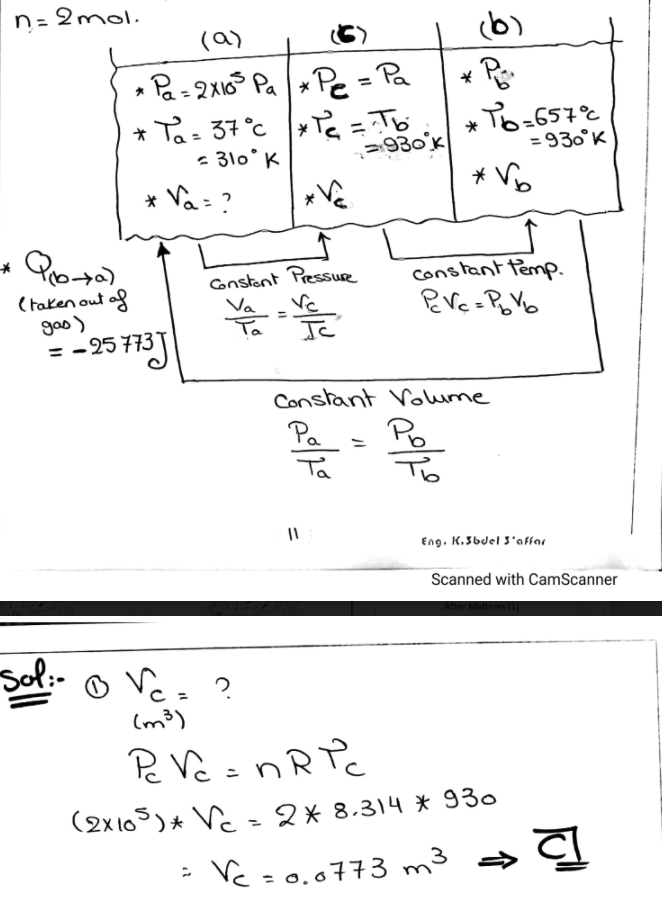 n = 2 mol.
(a) (c) (b)
* Pa = 2x10⁵ Pa
* Ta = 37°C
= 310°K
* Va = ?
* Pc = Pa
* Tc = Tb
= 930°K
* Vc
* Pb
* Tb = 657°C
= 930°K
* Vb
* Q(b→a)
(taken out of
gas)
= -25773J
Constant Pressure
Va/Ta = Vc/Tc
constant temp.
PcVc = PbVb
Constant Volume
Pa/Ta = Pb/Tb
11
Eng. K.
Scanned with CamScanner
After Midterm [1]
Sol:- ① Vc = ?
(m³)
Pc Vc = nRTc
(2x10⁵)* Vc = 2 * 8.314 * 930
= Vc = 0.0773 m³ ⇒ C